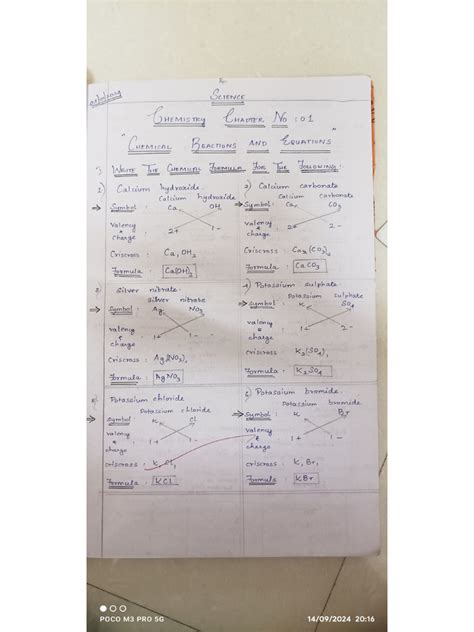 Science
Chemistry Chapter No : 01
"Chemical Reactions And Equations"
Write The Chemical Formula For The Following :
1) Calcium hydroxide.
Calcium hydroxide
⇒ Symbol : Ca OH
valency & charge : 2+ 1-
Criscross : Ca1OH2
Formula : Ca(OH)2
2) Calcium carbonate
Calcium carbonate
Symbol : Ca CO3
valency & charge : 2+ 2-
Criscross : Ca2(CO3)2
Formula : CaCO3
3) Silver nitrate.
Silver nitrate
⇒ Symbol : Ag NO3
valency & charge : 1+ 1-
Criscross : Ag1(NO3)1
Formula : AgNO3
4) Potassium sulphate.
Potassium sulphate
⇒ Symbol : K SO4
valency & charge : 1+ 2-
Criscross : K2(SO4)1
Formula : K2SO4
5) Potassium chloride
Potassium chloride
⇒ Symbol : K Cl
valency & charge : 1+ 1-
criscross : K1Cl1
Formula : KCl
6) Potassium bromide.
Potassium bromide
⇒ Symbol : K Br
valency & charge : 1+ 1-
criscross : K1Br1
Formula : KBr
POCO M3 PRO 5G
14/09/2024 20:16